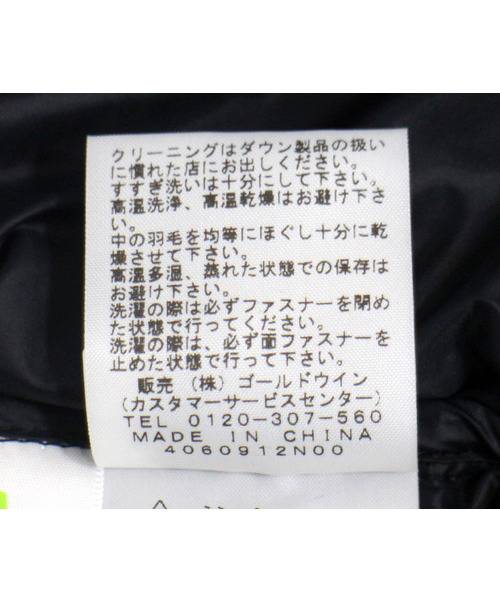 クリーニングはダウン製品の扱い
に慣れた店にお出しください。
すすぎ洗いは十分にして下さい。
高温洗浄、高温乾燥はお避け下さ
い。
中の羽毛を均等にほぐし十分に乾
燥させて下さい。
高温多湿、蒸れた状態での保存は
お避け下さい。
洗濯の際は必ずファスナーを閉め
た状態で行ってください。
洗濯の際は、必ず面ファスナーを
止めた状態で行って下さい。
販売 (株) ゴールドウイン
(カスタマーサービスセンター)
TEL 0120-307-560
MADE IN CHINA
4060912N00